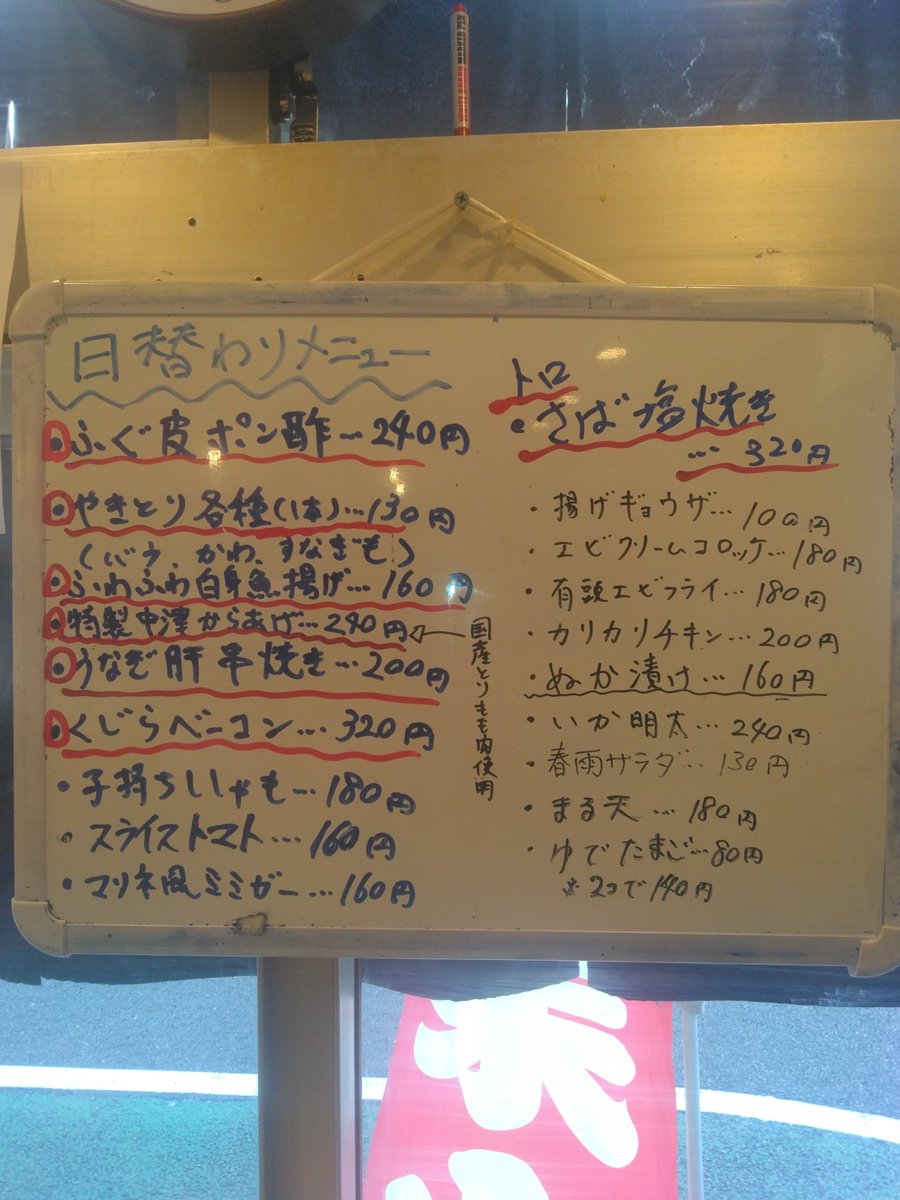 WHITE BOARD MARKER PEN
日替わりメニュー
・ふぐ皮ポン酢…240円
・やきとり各種(1本)…130円
(バラ、かわ、すなぎも)
・ふわふわ白身魚揚げ…160円
・特製中津からあげ…240円
←国産とりもも肉使用
・うなぎ肝串焼き…200円
・くじらベーコン…320円
・子持ちししゃも…180円
・スライストマト…160円
・マリネ風ミミガー…160円
トロ
・さば塩焼き
…320円
・揚げギョウザ…100円
・エビクリームコロッケ…180円
・有頭エビフライ…180円
・カリカリチキン…200円
・ぬか漬け…160円
・いか明太…240円
・春雨サラダ…130円
・まる天…180円
・ゆでたまご…80円
※2コで140円